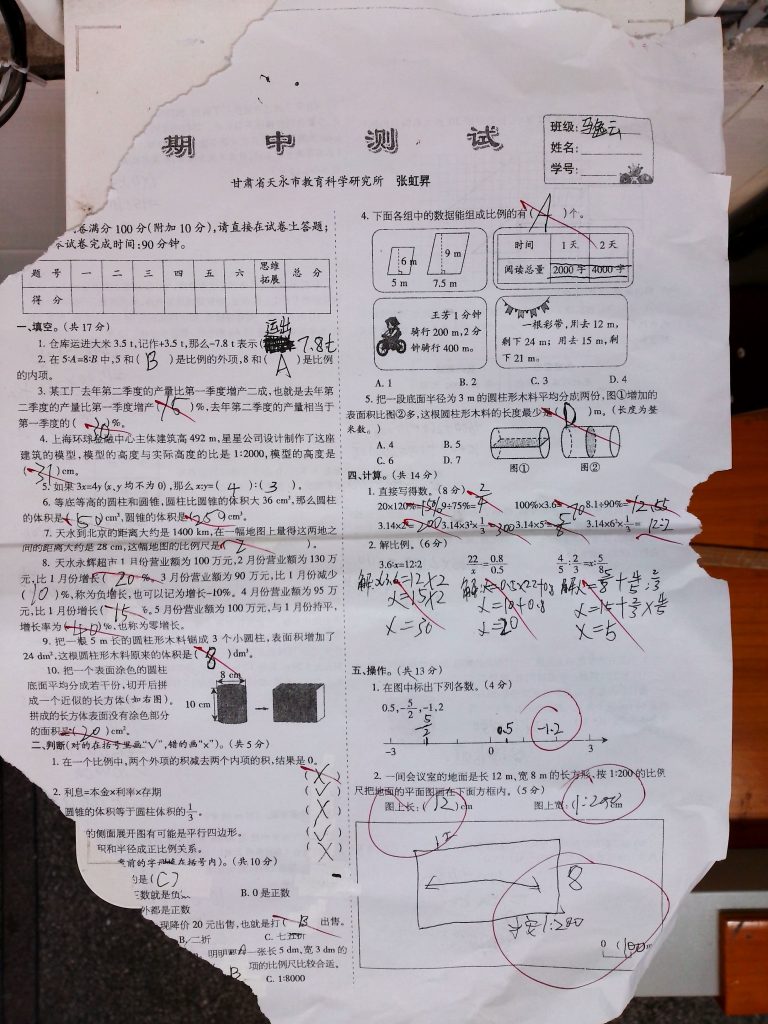 期 中 测 试
班级:
姓名:
学号:
甘肃省天水市教育科学研究所 张虹昇
卷满分100分(附加10分),请直接在试卷上答题;
试卷完成时间:90分钟。
题 号 一 二 三 四 五 六 思维拓展 总 分
得 分
一、填空。(共17分)
1. 仓库运进大米3.5 t,记作+3.5 t,那么-7.8 t表示( 运出 7.8t
2. 在5:A=8:B中,5和( B )是比例的外项,8和( A )是比例
的内项。
3. 某工厂去年第二季度的产量比第一季度增产二成,也就是去年第
二季度的产量比第一季度增产( 15 )%,去年第二季度的产量相当于
第一季度的( 20 )%。
4. 上海环球金融中心主体建筑高492 m,星星公司设计制作了这座
建筑的模型,模型的高度与实际高度的比是1:2000,模型的高度是
( 31 )cm。
5. 如果3x=4y(x、y均不为0),那么x:y=( 4 ):( 3 )。
6. 等底等高的圆柱和圆锥,圆柱比圆锥的体积大36 cm³,那么圆柱
的体积是( 50 )cm³,圆锥的体积是( 250 )cm³。
7. 天水到北京的距离大约是1400 km,在一幅地图上量得这两地之
间的距离大约是28 cm,这幅地图的比例尺是( 2 )。
8. 天水永辉超市1月份营业额为100万元,2月份营业额为130万
元,比1月份增长( 20 )%。3月份营业额为90万元,比1月份减少
( 10 )%,称为负增长,也可以记为增长-10%。4月份营业额为95万
元,比1月份增长( -15 )%。5月份营业额为100万元,与1月份持平,
增长率为( 40 )%,也称为零增长。
9. 把一根5 m长的圆柱形木料锯成3个小圆柱,表面积增加了
24 dm²,这根圆柱形木料原来的体积是( 8 )dm³。
10. 把一个表面涂色的圆柱
底面平均分成若干份,切开后拼
成一个近似的长方体(如右图)。
拼成的长方体表面没有涂色部分
的面积是( 20 )cm²。
8 cm
10 cm
二、判断(对的在括号里画“√”,错的画“×”)。(共5分)
1. 在一个比例中,两个外项的积减去两个内项的积,结果是0。 ( X )
2. 利息=本金×利率×存期 ( √ )
圆锥的体积等于圆柱体积的1/3。 ( X )
的侧面展开图有可能是平行四边形。 ( √ )
积和半径成正比例关系。 ( X )
(共10分)
的是( C )
正数就是负 B. 0是正数
外都是正数
现降价20元出售,也就是打( B 出售。
B. 二折 C. 七五折
一张长5 dm,宽3 dm的
B 项的比例尺比较合适。
C. 1:8000
4. 下面各组中的数据能组成比例的有( A )个。
6 m 9 m
5 m 7.5 m
时间 1天 2天
阅读总量 2000字 4000字
王芳1分钟
骑行200 m,2分
钟骑行400 m。
一根彩带,用去12 m,
剩下24 m;用去15 m,剩
下21 m。
A. 1 B. 2 C. 3 D. 4
5. 把一段底面半径为3 m的圆柱形木料平均分成两份,图①增加的
表面积比图②多,这根圆柱形木料的长度最少是( D )m。(长度为整
米数。)
A. 4 B. 5
C. 6 D. 7
图① 图②
四、计算。(共14分)
1. 直接写得数。(8分)
20×120%= 9÷75%= 100%×3.6= 8.1÷90%=
3.14×2²= 3.14×3²×1/3= 300 3.14×5²= 5/8 3.14×6²×1/3= 12:2
2. 解比例。(6分)
3.6:x=12:2 22/x=0.8/0.5 4/5:2/3=x:5/8
x=15×2 x=10+0.8 x=15+2/3×4/5
x=30 x=20 x=5
五、操作。(共13分)
1. 在图中标出下列各数。(4分)
0.5,-5/2,-1,2
5/2 0.5 -1.2
-3 0 3
2. 一间会议室的地面是长12 m,宽8 m的长方形,按1:200的比例
尺把地面的平面图画在下面方框内。(5分)
图上长:( 12 )cm 图上宽:
12
8
1:200
0